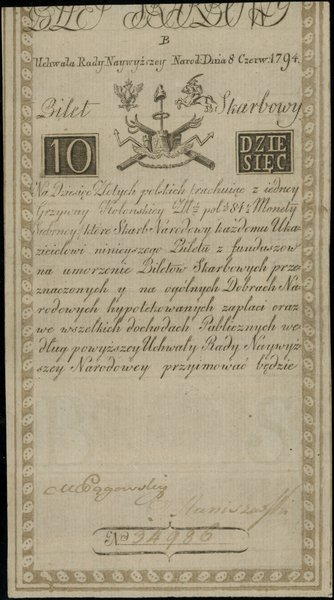 BILET SKARBOWY
B
Uchwała Rady Naywyżſzey Narod: Dnia 8 Czerw: 1794.
Bilet Skarbowy
10 DZIE SIĘĆ
Na Dziesięć Złotych polskich rachuiąc z iedney
Grzywny Kolońskiey Złł: pol: 84½ Monety
srebrney, które Skarb Narodowy każdemu Oka-
zicielowi ninieyszego Biletu z funduszow
na umorzenie Biletow Skarbowych prze-
znaczonych y na ogólnych Dobrach Na-
rodowych hypotekowanych zapłaci oraz
we wszelkich dochodach Publicznych we-
dług powyższey Uchwały Rady Naywyż-
szey Narodowey przyimować będzie
M Pągowski
No 34986